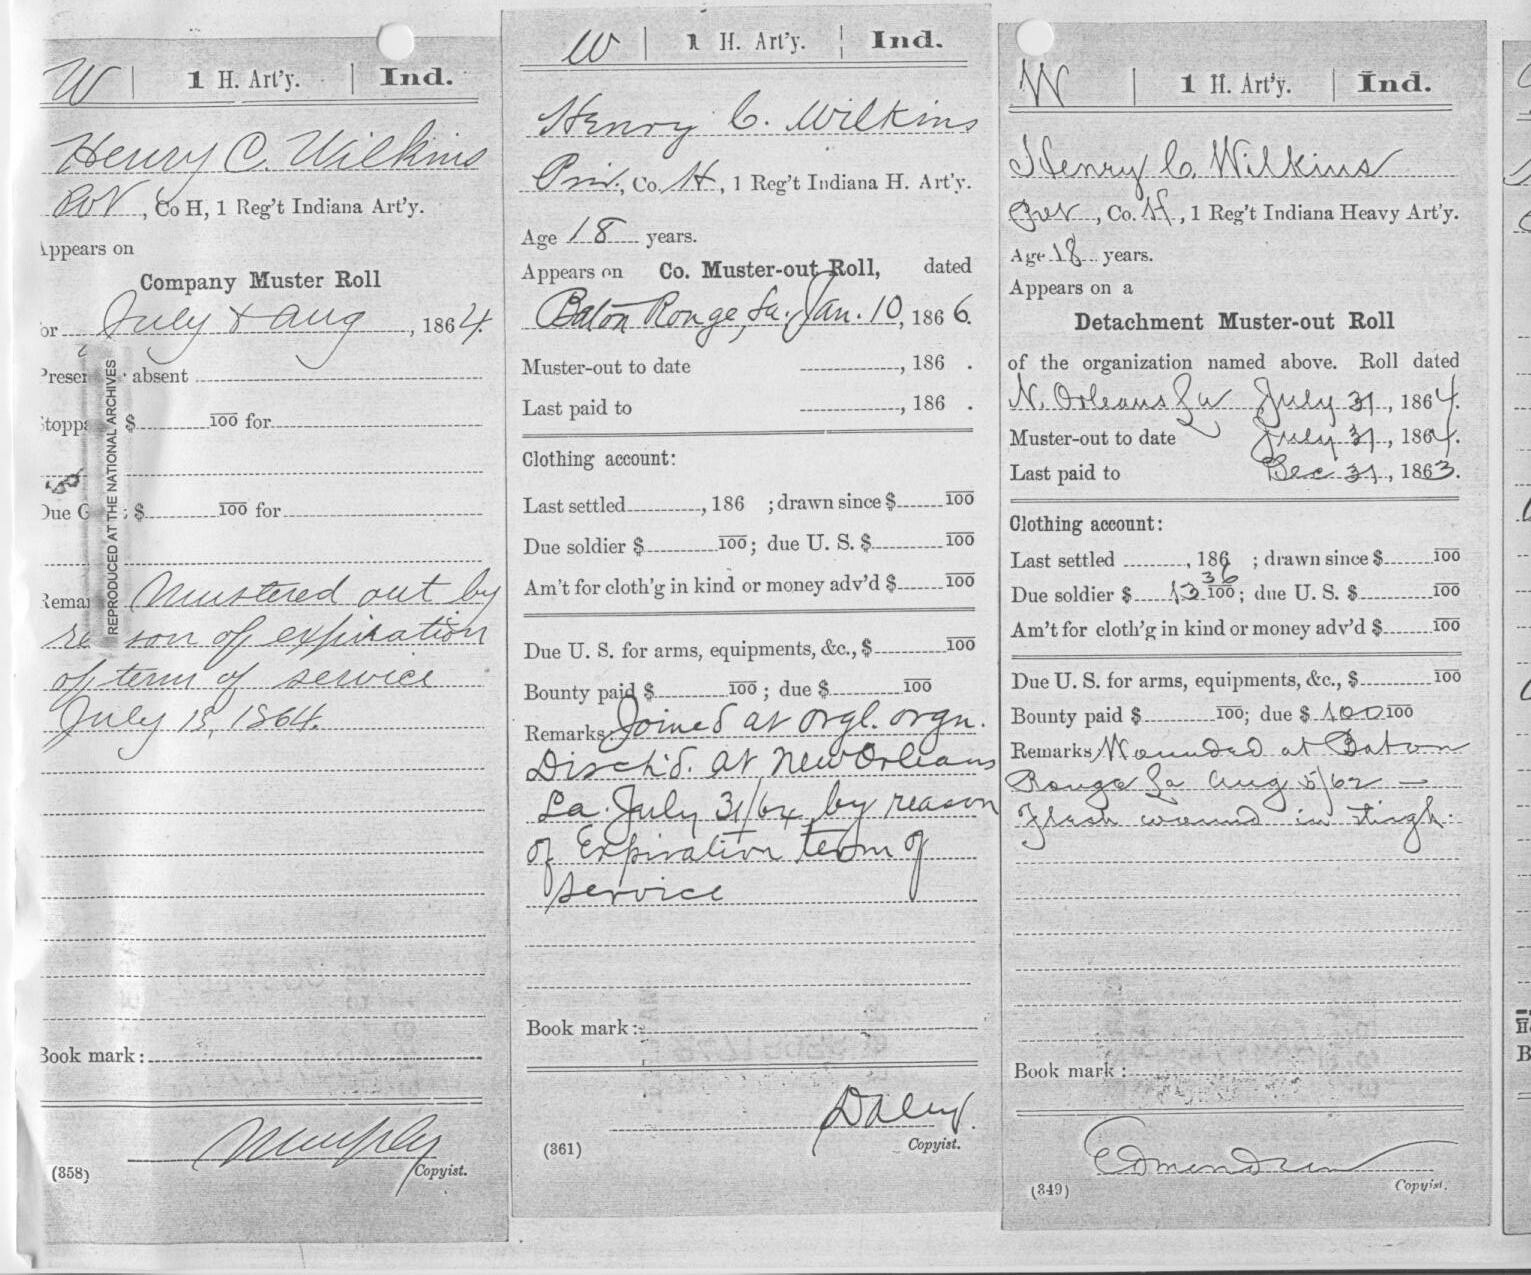 W | 1 H. Art'y. | Ind.
Henry C. Wilkins
Pvt, Co H, 1 Reg't Indiana Art'y.
Appears on
Company Muster Roll
for July & Aug, 1864.
Present absent
Stoppa $ 100 for
Due G $ 100 for
REPRODUCED AT THE NATIONAL ARCHIVES
Remar Mustered out by
reason of expiration
of term of service
July 1864.
Book mark:
Murphy
(358) Copyist.
W | 1 H. Art'y. | Ind.
Henry C. Wilkins
Priv., Co. H, 1 Reg't Indiana H. Art'y.
Age 18 years.
Appears on Co. Muster-out Roll, dated
Baton Rouge, La. Jan. 10, 1866.
Muster-out to date , 186 .
Last paid to , 186 .
Clothing account:
Last settled , 186 ; drawn since $ 100
Due soldier $ 100; due U. S. $ 100
Am't for cloth'g in kind or money adv'd $ 100
Due U. S. for arms, equipments, &c., $ 100
Bounty paid $ 100; due $ 100
Remarks: Joined at orgl. orgn.
Disch'd. at New Orleans
La. July 31/64 by reason
of Expiration term of
service
Book mark:
Daley
(361) Copyist.
W | 1 H. Art'y. | Ind.
Henry C. Wilkins
Pvt, Co. H, 1 Reg't Indiana Heavy Art'y.
Age 18 years.
Appears on a
Detachment Muster-out Roll
of the organization named above. Roll dated
N. Orleans La July 31, 1864.
Muster-out to date July 31, 1864.
Last paid to Dec 31, 1863.
Clothing account:
Last settled , 186 ; drawn since $ 100
Due soldier $ 13 36 100; due U. S. $ 100
Am't for cloth'g in kind or money adv'd $ 100
Due U. S. for arms, equipments, &c., $ 100
Bounty paid $ 100; due $ 100 100
Remarks Wounded at Baton
Rouge La Aug 5/62 —
Flesh wound in thigh.
Book mark:
(349) Copyist.